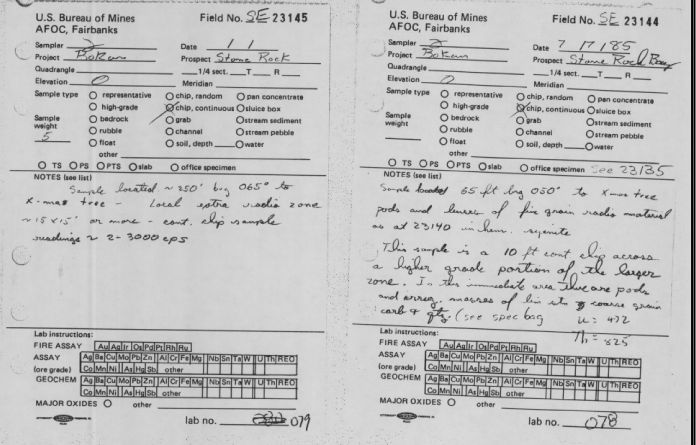 U.S. Bureau of Mines
AFOC, Fairbanks
Field No. SE 23145
Sampler 2
Date / /
Project Bokan
Prospect Stone Rock
Quadrangle 1/4 sect. T R
Elevation 0 Meridian
Sample type
O representative O chip, random O pan concentrate
O high-grade O chip, continuous O sluice box
Sample weight 5
O bedrock O grab O stream sediment
O rubble O channel O stream pebble
O float O soil, depth O water
other
O TS O PS O PTS O slab O office specimen
NOTES (see list)
Sample located ~ 250' brg 065° to
X-mas tree - Local extra radio zone
~ 15 x 15' or more - cont. chip sample
readings ~ 2-3000 cps
Lab instructions:
FIRE ASSAY Au Ag Ir Os Pd Pt Rh Ru
ASSAY (ore grade) Ag Ba Cu Mo Pb Zn Al Cr Fe Mg Nb Sn Ta W U Th REO
Co Mn Ni As Hg Sb other
GEOCHEM Ag Ba Cu Mo Pb Zn Al Cr Fe Mg Nb Sn Ta W U Th REO
Co Mn Ni As Hg Sb other
MAJOR OXIDES O other
lab no. 079
U.S. Bureau of Mines
AFOC, Fairbanks
Field No. SE 23144
Sampler 2
Date 7/17/85
Project Bokan
Prospect Stone Rock Bay
Quadrangle 1/4 sect. T R
Elevation 0 Meridian
Sample type
O representative O chip, random O pan concentrate
O high-grade O chip, continuous O sluice box
Sample weight
O bedrock O grab O stream sediment
O rubble O channel O stream pebble
O float O soil, depth O water
other
O TS O PS O PTS O slab O office specimen see 23135
NOTES (see list)
Sample 65 ft brg 050° to Xmas tree
pods and lenses of fine grain radio material
as at 23140 in hem. syenite
This sample is a 10 ft cont chip across
a higher grade portion of the larger
zone. In this immediate area there are pods
and irreg. masses of coarse grain
carb & qtz. (see spec bag
U = 472
Th = 825
Lab instructions:
FIRE ASSAY Au Ag Ir Os Pd Pt Rh Ru
ASSAY (ore grade) Ag Ba Cu Mo Pb Zn Al Cr Fe Mg Nb Sn Ta W U Th REO
Co Mn Ni As Hg Sb other
GEOCHEM Ag Ba Cu Mo Pb Zn Al Cr Fe Mg Nb Sn Ta W U Th REO
Co Mn Ni As Hg Sb other
MAJOR OXIDES O other
lab no. 078